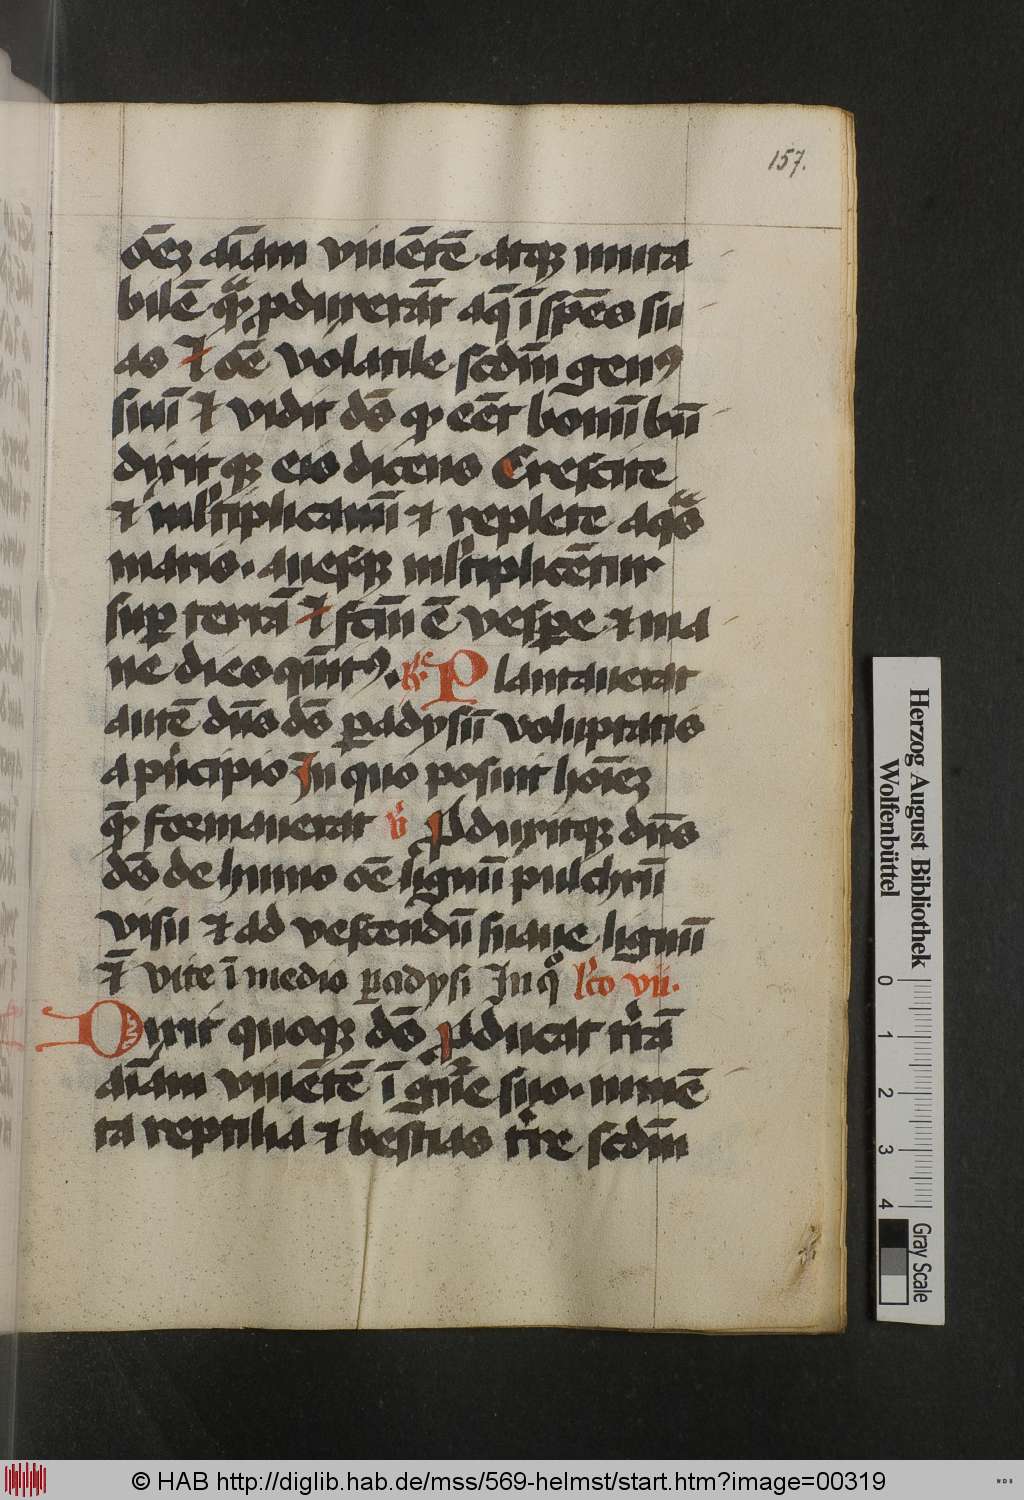 157.
ōēz aīam viuētē atqꝫ muta
bilē quā ꝓduxerāt aq̄ ī spēs su
as ⁊ oē volatile scdm̄ genꝰ
suū ⁊ vidit ds̄ qꝫ eēt bonū bn̄
dixit qꝫ eis dicens Crescite
⁊ ml̄tiplicamī ⁊ replete aquas
maris. auesqꝫ ml̄tiplicētur
suꝑ terrā ⁊ fcm̄ ē vespe ⁊ ma
ne dies qūitꝰ. Plantauerat
autē dn̄s ds̄ ꝑadysū voluptatis
a pncipio In quo posuit hoīez
quē formauerat ꝟ Produxitqꝫ dn̄s
ds̄ de humo oē lignū pulchrū
visu ⁊ ad vescendū suaue lignū
⁊ vite ī medio ꝑadysi In qͦ lc̄o vii.
Dixit quoqꝫ ds̄ Producat trā
aīam viuētē ī gn̄e suo. iumē
ta reptilia ⁊ bestias tre scdm̄
Herzog August Bibliothek
Wolfenbüttel
0
1
2
3
4
Gray Scale
© HAB http://diglib.hab.de/mss/569-helmst/start.htm?image=00319